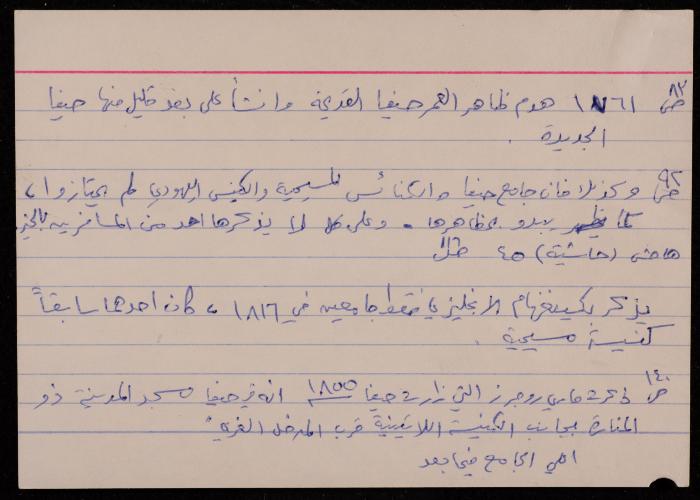 ص ٨٢ ١٨٦١ هدم ظاهر العمر حيفا القديمة وانشأ على بعد قليل منها حيفا
الجديدة .
ص ٩٢ وكذلك فان جامع حيفا والكنائس المسيحية والكنيس اليهودي لم يمتازوا ،
كما يبدو بمظاهرها . وعلى كل لا يذكرها احد من المسافرين بالخير
هامش (حاشية) ٤٥ مثلاً
يذكر بكينغهام الانجليزي فقط جامعين في ١٨١٦ ، كان احدهما سابقاً
كنيسة مسيحية .
ص ١٤٠ ذكرت ماري روجرز التي زارت حيفا ١٨٥٥ انه في حيفا مسجد المدينة ذو
المنارة بجانب الكنيسة اللاتينية قرب المدخل الغربي"
اهي الجامع فيما بعد